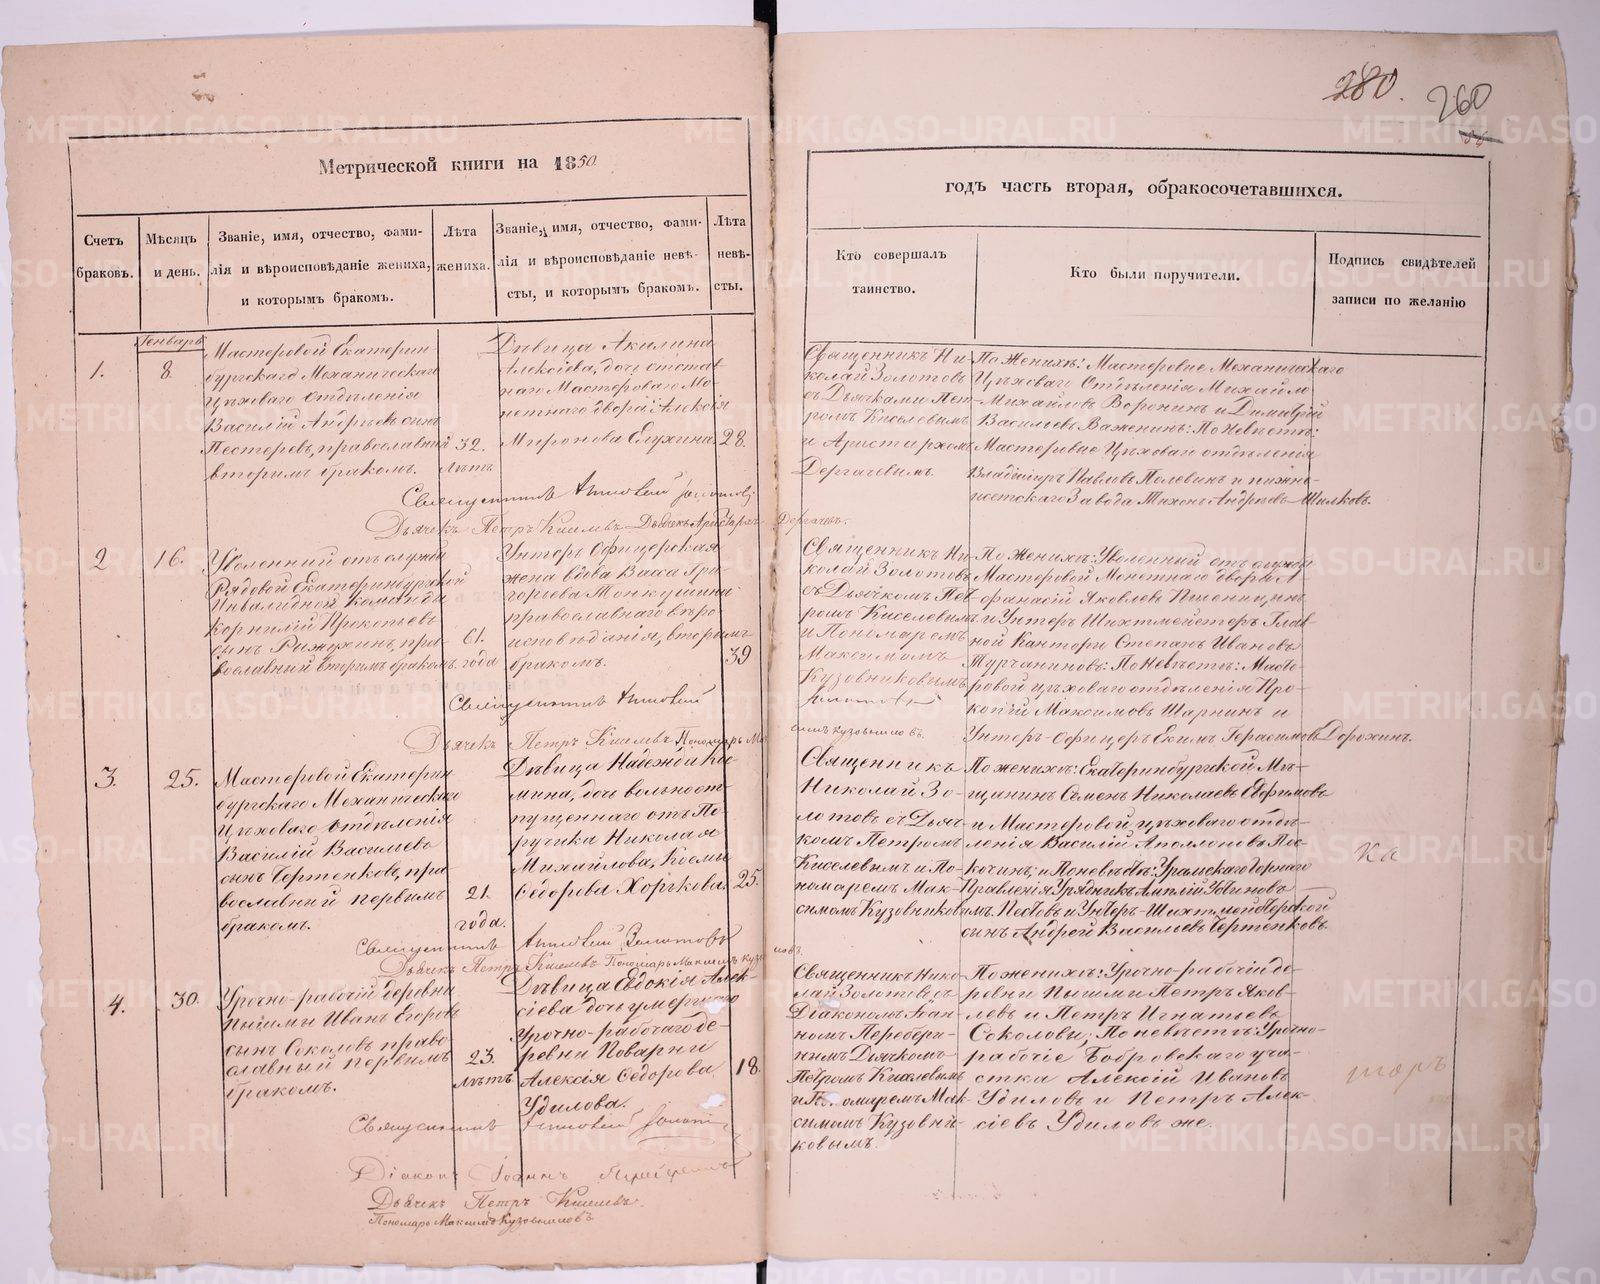 280.
260
Метрической книги на 1850
годъ часть вторая, обракосочетавшихся.
Счетъ браковъ.
Мѣсяцъ и день.
Званіе, имя, отчество, фами-
лія и вѣроисповѣданіе жениха,
и которымъ бракомъ.
Лѣта
жениха.
Званіе, имя, отчество, фами-
лія и вѣроисповѣданіе невѣ-
сты, и которымъ бракомъ.
Лѣта
невѣ-
сты.
Кто совершалъ
таинство.
Кто были поручители.
Подпись свидѣтелей
записи по желанію
Генварь
1.
8.
Мастеровой Екатерин
бургскаго Механическаго
Цѣховаго Отдѣленія
Василій Андрѣевъ сынъ
Пестеревъ, православный
вторымъ бракомъ.
32.
лѣтъ
Дѣвица Акилина
Алексіева, дочь отстав
наго Мастероваго Мо
нетнаго двора Алексія
Миронова
28.
Священникъ Ни-
колай Золотовъ
съ Дьячками Пет-
ромъ Киселевымъ
и Аристархомъ
Дергачевымъ.
По Женихѣ: Мастеровые Механическаго
Цѣховаго Отдѣленія Михайло
Михайловъ Воронинъ и Димитрій
Васильевъ Важенинъ: По Невѣстѣ:
Мастеровые Цѣховаго отдѣленія
Владиміръ Павловъ Пелевинъ и нижне-
исетскаго Завода Тихонъ Андрѣевъ Шилковъ.
Священникъ Николай Золотовъ
Дьячекъ Петръ Киселевъ Дьячекъ Аристархъ Дергачевъ.
2
16.
Уволенный отъ службы
Рядовой Екатеринбургской
Инвалидной Команды
Корнилій Прокопьевъ
сынъ Рыжухинъ, пра-
вославный вторымъ бракомъ.
61.
года
Унтеръ Офицерская
жена вдова Васса Гри-
горьева Тонкушина
православнаго вѣро-
исповѣданія, вторымъ
бракомъ.
39
Священникъ Ни-
колай Золотовъ
съ Дьячкомъ Пет-
ромъ Киселевымъ
и Пономаремъ
Максимомъ
Кузовниковымъ
По Женихѣ: Уволенный отъ службы
Мастеровой Монетнаго двора А-
фанасій Яковлевъ Пшеницынъ
и Унтеръ Шихтмейстеръ Глав-
ной Канторы Степанъ Ивановъ
Турчаниновъ: По Невѣстѣ: Масте-
ровой цѣховаго отдѣленія Про-
копій Максимовъ Шарнинъ и
Унтеръ-Офицеръ Екимъ Герасимовъ Дорохинъ.
Священникъ Николай Золотовъ
Дьячекъ Петръ Киселевъ Пономарь Максимъ Кузовниковъ.
3.
25.
Мастеровой Екатерин
бургскаго Механическаго
Цѣховаго Отдѣленія
Василій Васильевъ
сынъ Чертенковъ, пра
вославный первымъ
бракомъ.
21.
года.
Дѣвица Надежда Ко
мина, дочь вольноот-
пущеннаго отъ По-
ручика Николая
Михайлова, Косьмы
Ѳедорова Хорькова.
25.
Священникъ
Николай Зо-
лотовъ съ Дьяч-
комъ Петромъ
Киселевымъ и По-
номаремъ Мак-
симомъ Кузовниковымъ.
По женихѣ: Екатеринбургской Мѣ-
щанинъ Семенъ Николаевъ Евфимовъ
и Мастеровой цѣховаго отдѣ-
ленія Василій Аполлоновъ Пѣ-
кочинъ; и По невѣстѣ: Уральскаго Горнаго
Правленія Урядникъ Амплій Устиновъ
Пестовъ и Унтеръ-Шихтмейстерской
сынъ Андрей Васильевъ Чертенковъ.
ка
Священникъ Николай Золотовъ
Дьячекъ Петръ Киселевъ Пономарь Максимъ Кузовниковъ.
4.
30.
Урочно-рабочій деревни
Пышмы Иванъ Егоровъ
сынъ Соколовъ право
славный первымъ
бракомъ.
23.
лѣтъ
Дѣвица Евдокія Алек-
сіева дочь умершаго
Урочно-рабочаго де-
ревни Поварни
Алексія Ѳедорова
Удилова.
18.
Священникъ Нико-
лай Золотовъ съ
Діакономъ Іоан-
номъ
Дьячкомъ
Петромъ Киселевымъ
и Пономаремъ Мак-
симомъ Кузовни-
ковымъ.
По женихѣ: Урочно-рабочій де-
ревни Пышмы Петръ Яков-
левъ и Петръ Игнатьевъ
Соколовы; По невѣстѣ: Урочно-
рабочіе Бобровскаго уча-
стка Алексій Ивановъ
Удиловъ и Петръ Алек-
сіевъ Удиловъ же.
торъ
Священникъ Николай Золотовъ
Діаконъ Іоаннъ
Дьячекъ Петръ Киселевъ.
Пономарь Максимъ Кузовниковъ